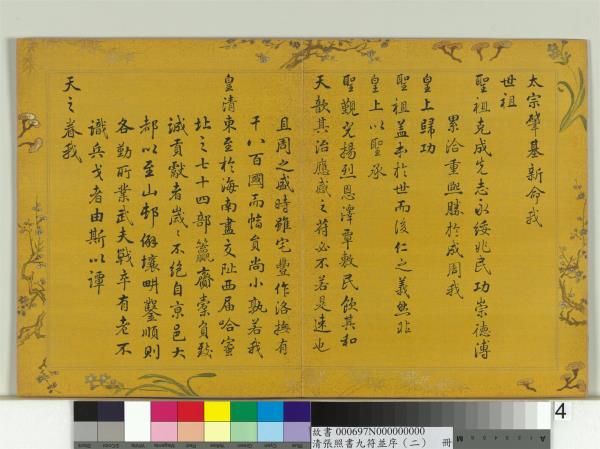 太宗肇基新命我
世祖
聖祖克成先志永綏兆民功崇德溥
累洽重熙勝於成周我
皇上歸功
聖祖蓋本於世而後仁之義然非
皇上以聖承
聖覲光揚烈恩澤覃敷民飲其和
天歆其治應感之符必不若是速也
且周之盛時雖宅豐作洛撫有
千八百國而幅員尚小孰若我
皇清東至於海南盡交阯西届哈蜜
北之七十四部籯齎橐負致
誠貢獻者歲〻不絕自京邑大
都以至山邨僻壤畊鑿順則
各勤所業武夫戰卒有老不
識兵戈者由斯以譚
天之眷我
4
故書 000697N000000000
清張照書九符並序（二） 冊